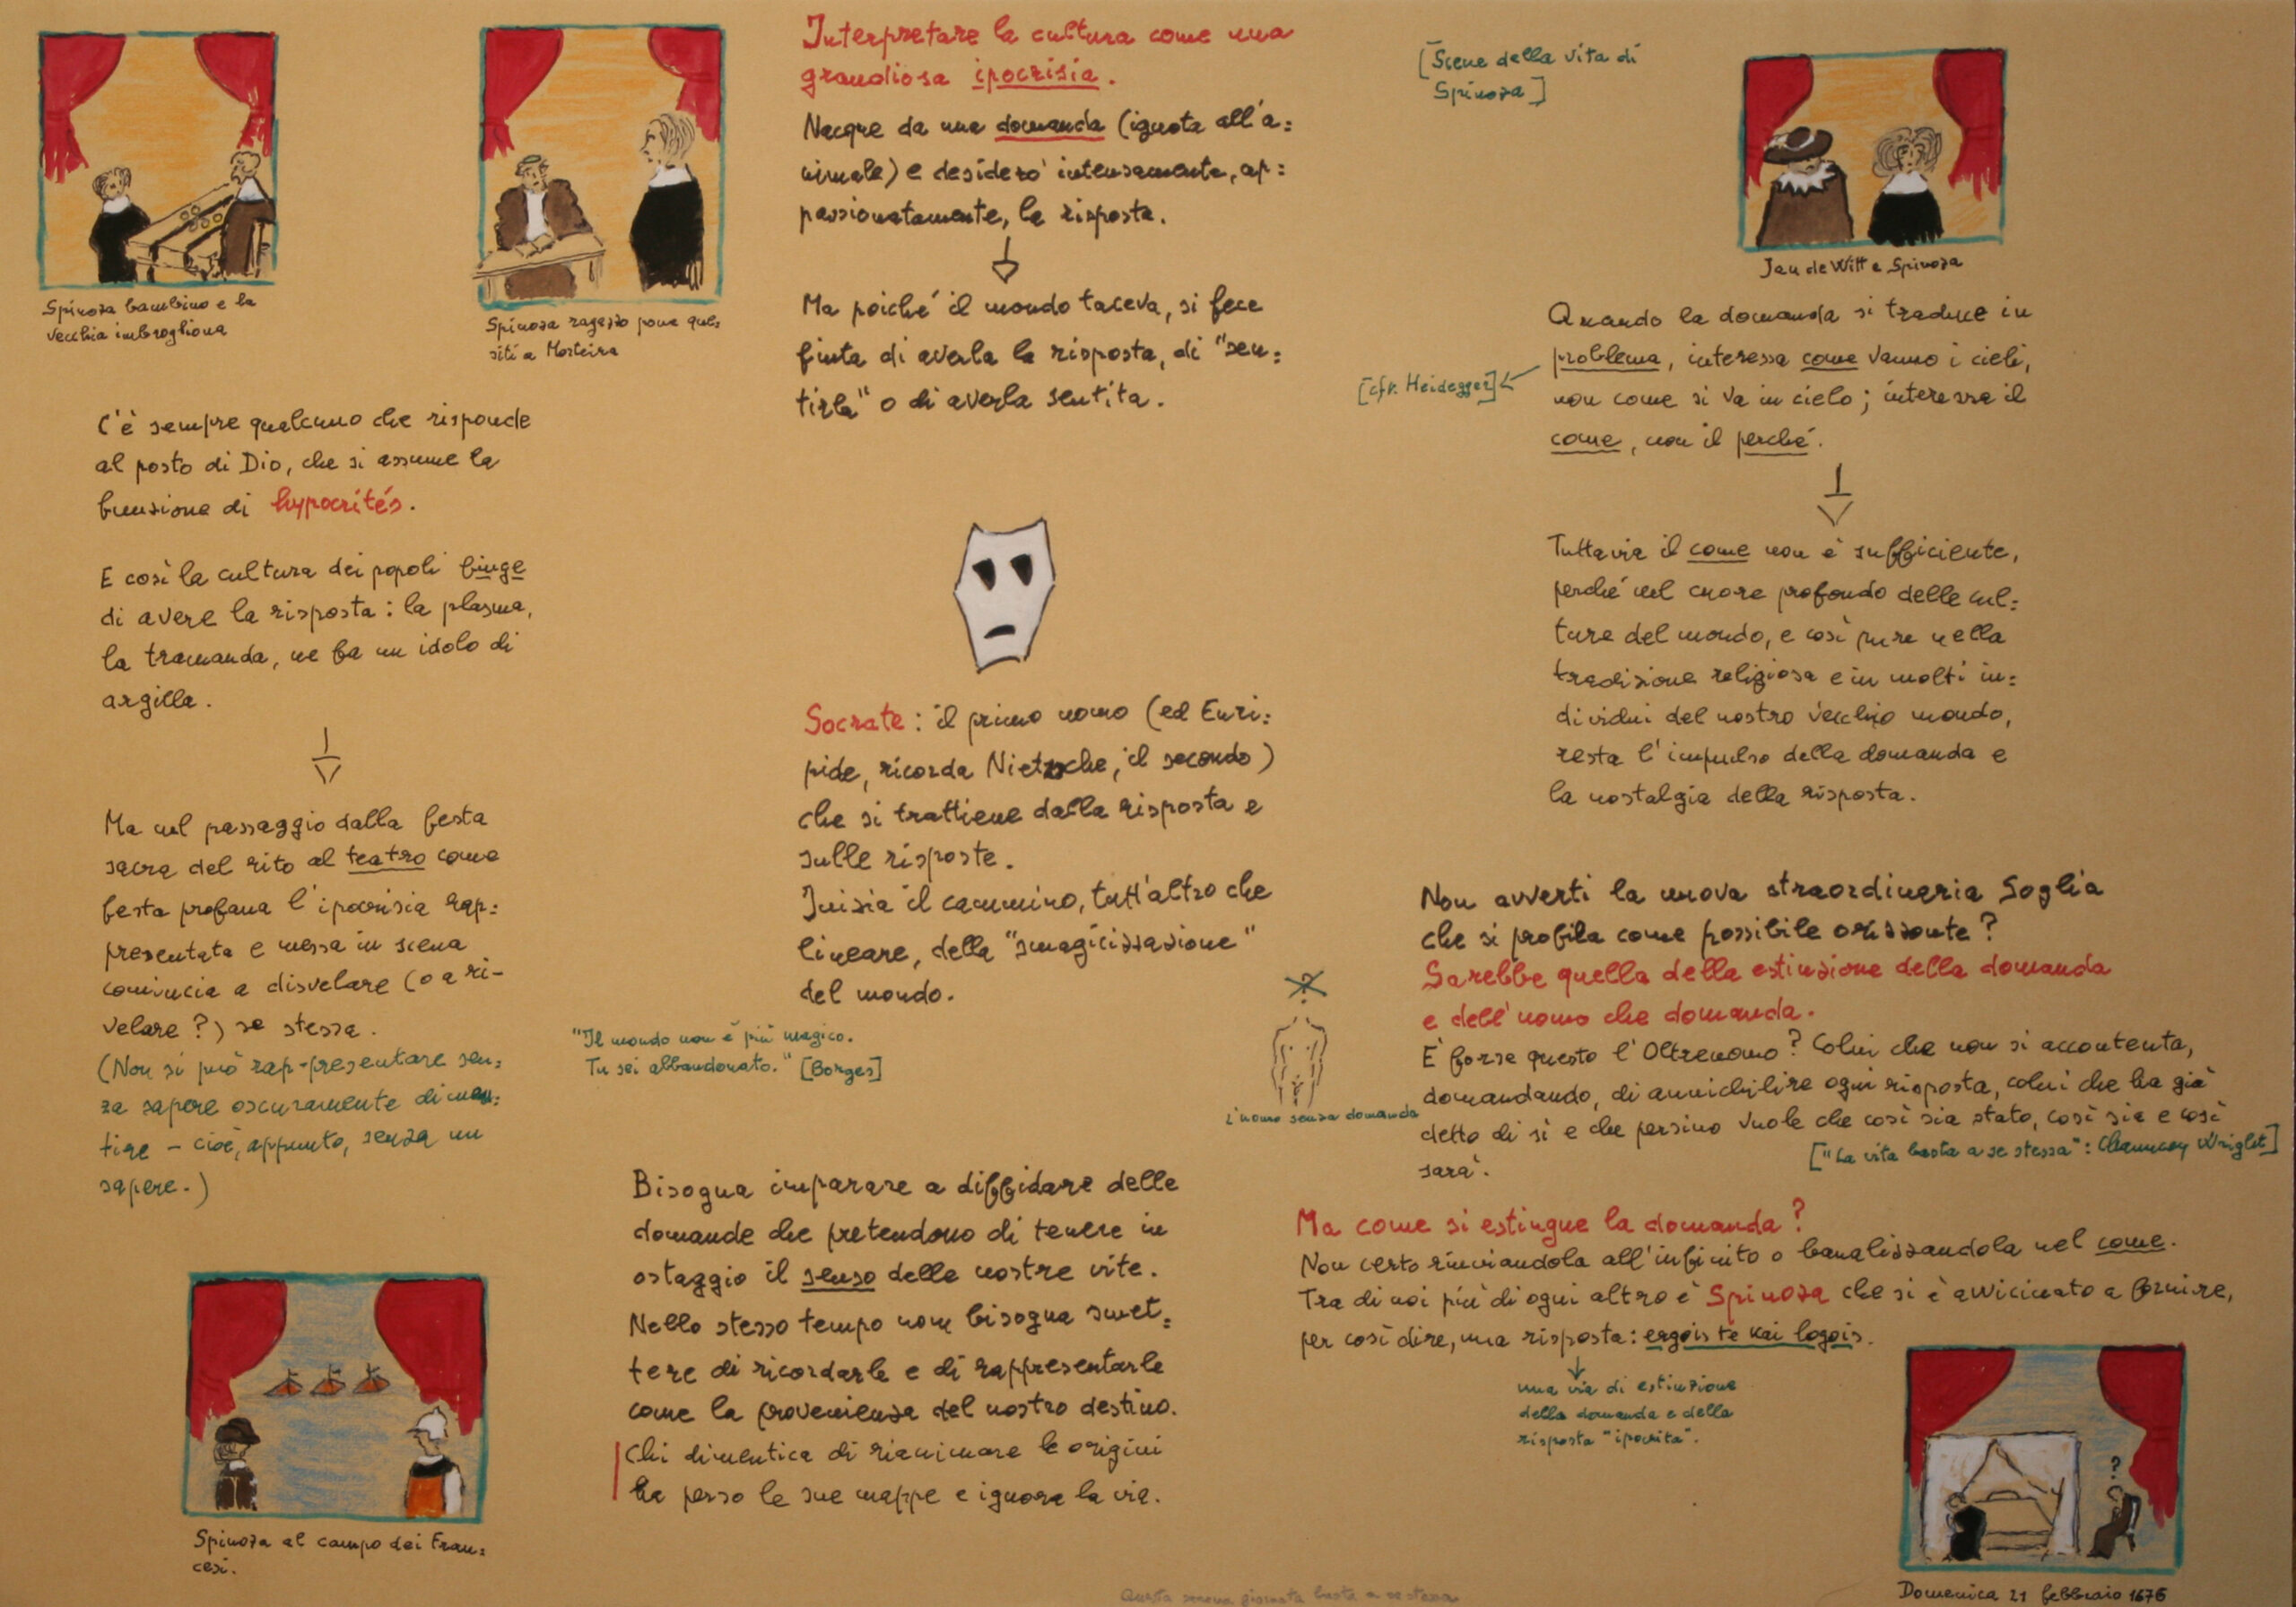 Spinoza bambino e la
vecchia imbrogliona
Spinoza ragazzo pone que=
siti a Morteira
C'è sempre qualcuno che risponde
al posto di Dio, che si assume la
funzione di hypocrités.
E così la cultura dei popoli finge
di avere la risposta: la plasma,
la tramanda, ne fa un idolo di
argilla.
Ma nel passaggio dalla festa
sacra del rito al teatro come
festa profana l'ipocrisia rap=
presentata e messa in scena
comincia a disvelare (o a ri-
velare?) se stessa.
(Non si può rap-presentare sen=
za sapere oscuramente di men=
tire – cioè, appunto, senza un
sapere.)
Spinoza al campo dei Fran=
cesi.
Interpretare la cultura come una
grandiosa ipocrisia.
Nacque da una domanda (ignota all'a=
nimale) e desiderò intensamente, ap=
passionatamente, la risposta.
Ma poiché il mondo taceva, si fece
finta di averla la risposta, di "sen=
tirla" o di averla sentita.
Socrate: il primo uomo (ed Euri=
pide, ricorda Nietzsche, il secondo)
che si trattiene dalla risposta e
sulle risposte.
Inizia il cammino, tutt'altro che
lineare, della "smagicizzazione"
del mondo.
"Il mondo non è più magico.
Tu sei abbandonato." [Borges]
Bisogna imparare a diffidare delle
domande che pretendono di tenere in
ostaggio il senso delle nostre vite.
Nello stesso tempo non bisogna smet=
tere di ricordarle e di rappresentarle
come la provenienza del nostro destino.
Chi dimentica di rianimare le origini
ha perso le sue mappe e ignora la via.
[Scene della vita di
Spinoza]
Jan de Witt e Spinoza
Quando la domanda si traduce in
problema, interessa come vanno i cieli,
non come si va in cielo; interessa il
come, non il perché.
[cfr. Heidegger]
Tuttavia il come non è sufficiente,
perché nel cuore profondo delle cul=
ture del mondo, e così pure nella
tradizione religiosa e in molti in=
dividui del nostro vecchio mondo,
resta l'impulso della domanda e
la nostalgia della risposta.
Non avverti la nuova straordinaria Soglia
che si profila come possibile orizzonte?
Sarebbe quella della estinzione della domanda
e dell'uomo che domanda.
È forse questo l'Oltreuomo? Colui che non si accontenta,
domandando, di annichilire ogni risposta, colui che ha già
detto di sì e che persino vuole che così sia stato, così sia e così
sarà.
["La vita basta a se stessa": Chauncey Wright]
?
L'uomo senza domanda
Ma come si estingue la domanda?
Non certo rinviandola all'infinito o banalizzandola nel come.
Tra di noi più di ogni altro è Spinoza che si è avvicinato a fornire,
per così dire, una risposta: ergois te kai logois.
una via di estinzione
della domanda e della
risposta "ipocrita".
?
Domenica 21 febbraio 1676
Questa serena giornata basta a se stessa